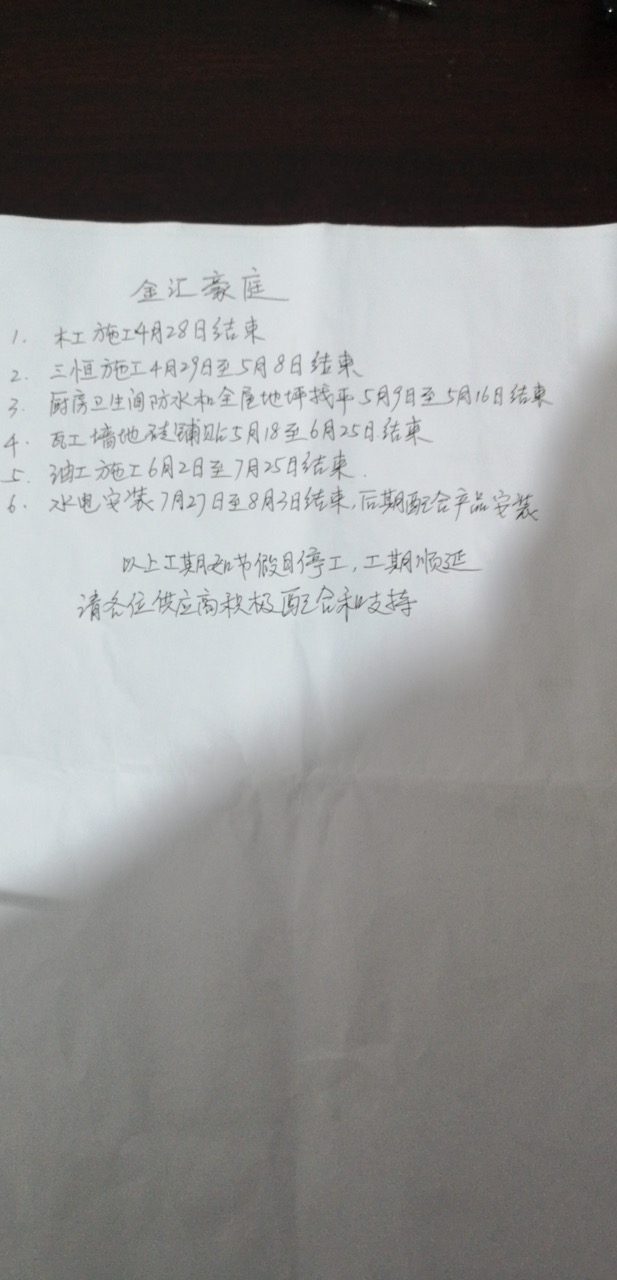 金汇豪庭
1. 木工施工4月28日结束
2. 三恒施工4月29日至5月8日结束
3. 厨房卫生间防水和全屋地坪找平5月9日至5月16日结束
4. 瓦工墙地砖铺贴5月18至6月25日结束
5. 油工施工6月2日至7月25日结束.
6. 水电安装7月27日至8月3日结束,后期配合产品安装
以上工期如节假日停工,工期顺延
请各位供应商积极配合和支持